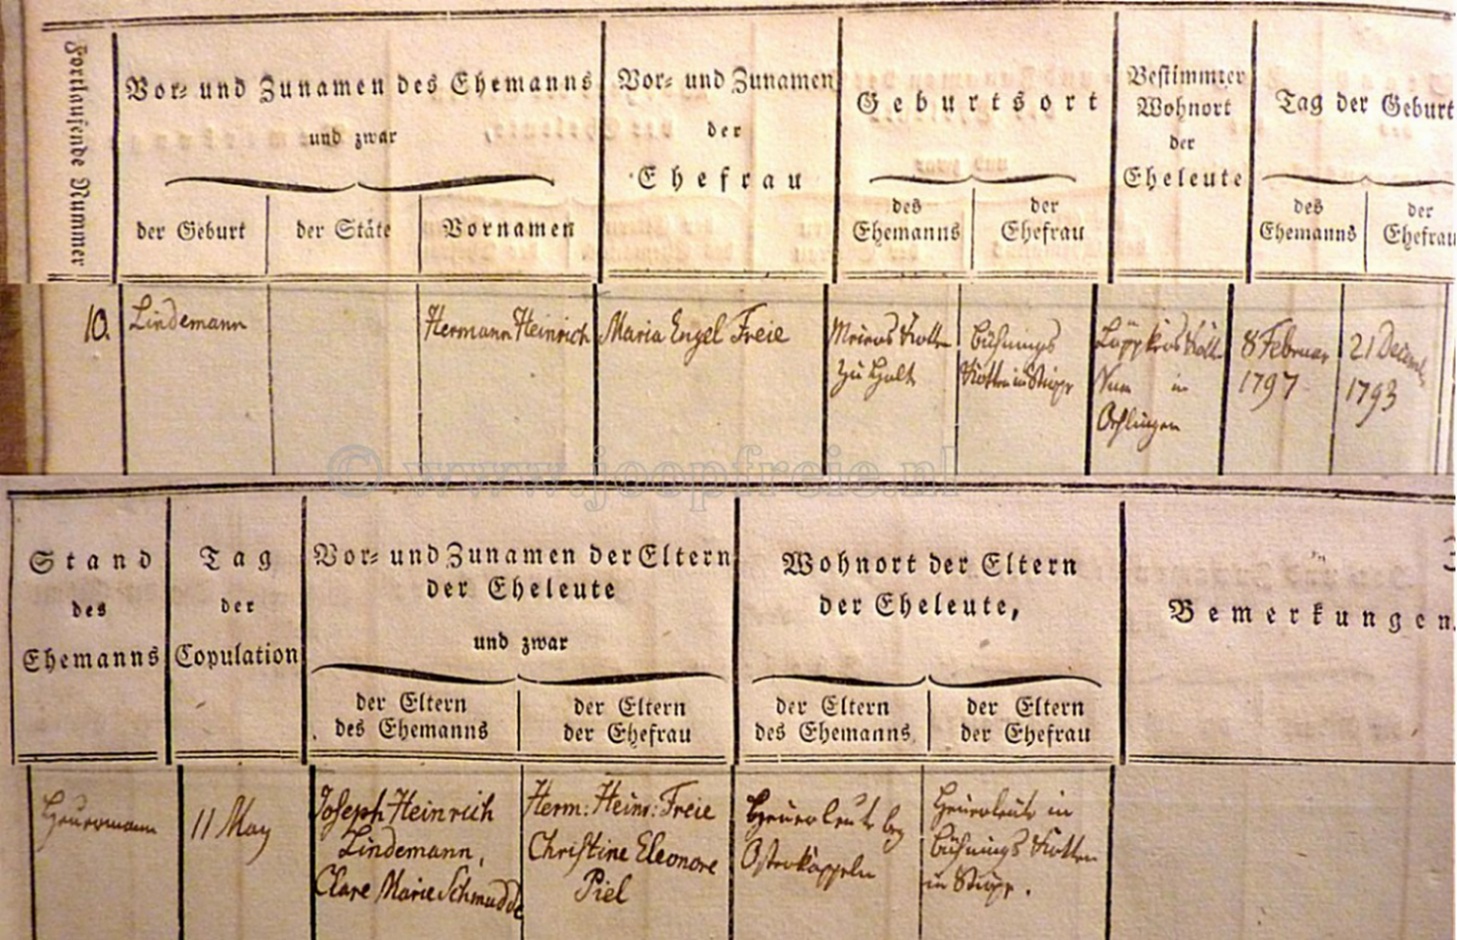 Fortlaufende Nummer
Vor- und Zunamen des Ehemanns
und zwar
der Geburt
der Stäte
Vornamen
Vor- und Zunamen
der
Ehefrau
Geburtsort
des
Ehemanns
der
Ehefrau
Bestimmter
Wohnort
der
Eheleute
Tag der Geburt
des
Ehemanns
der
Ehefrau
10.
Lindemann
Hermann Heinrich
Maria Engel Freie
Meiers Kotten
zu Halt
Bühnings
Kotten in Stirpe
Kott
in
Oehlingen
8 Februar
1797
21 Decemb
1793
© www.joopfreie.nl
Stand
des
Ehemanns
Tag
der
Copulation
Vor- und Zunamen der Eltern
der Eheleute
und zwar
der Eltern
des Ehemanns
der Eltern
der Ehefrau
Wohnort der Eltern
der Eheleute,
der Eltern
des Ehemanns
der Eltern
der Ehefrau
Bemerkungen.
Heuermann
11 May
Joseph Heinrich
Lindemann,
Clare Marie Schmudde
Herm: Heinr: Freie
Christine Eleonore
Piel
Heuerleute bey
Osterkappeln
Heuerleute in
Bühnings Kotten
in Stirpe.